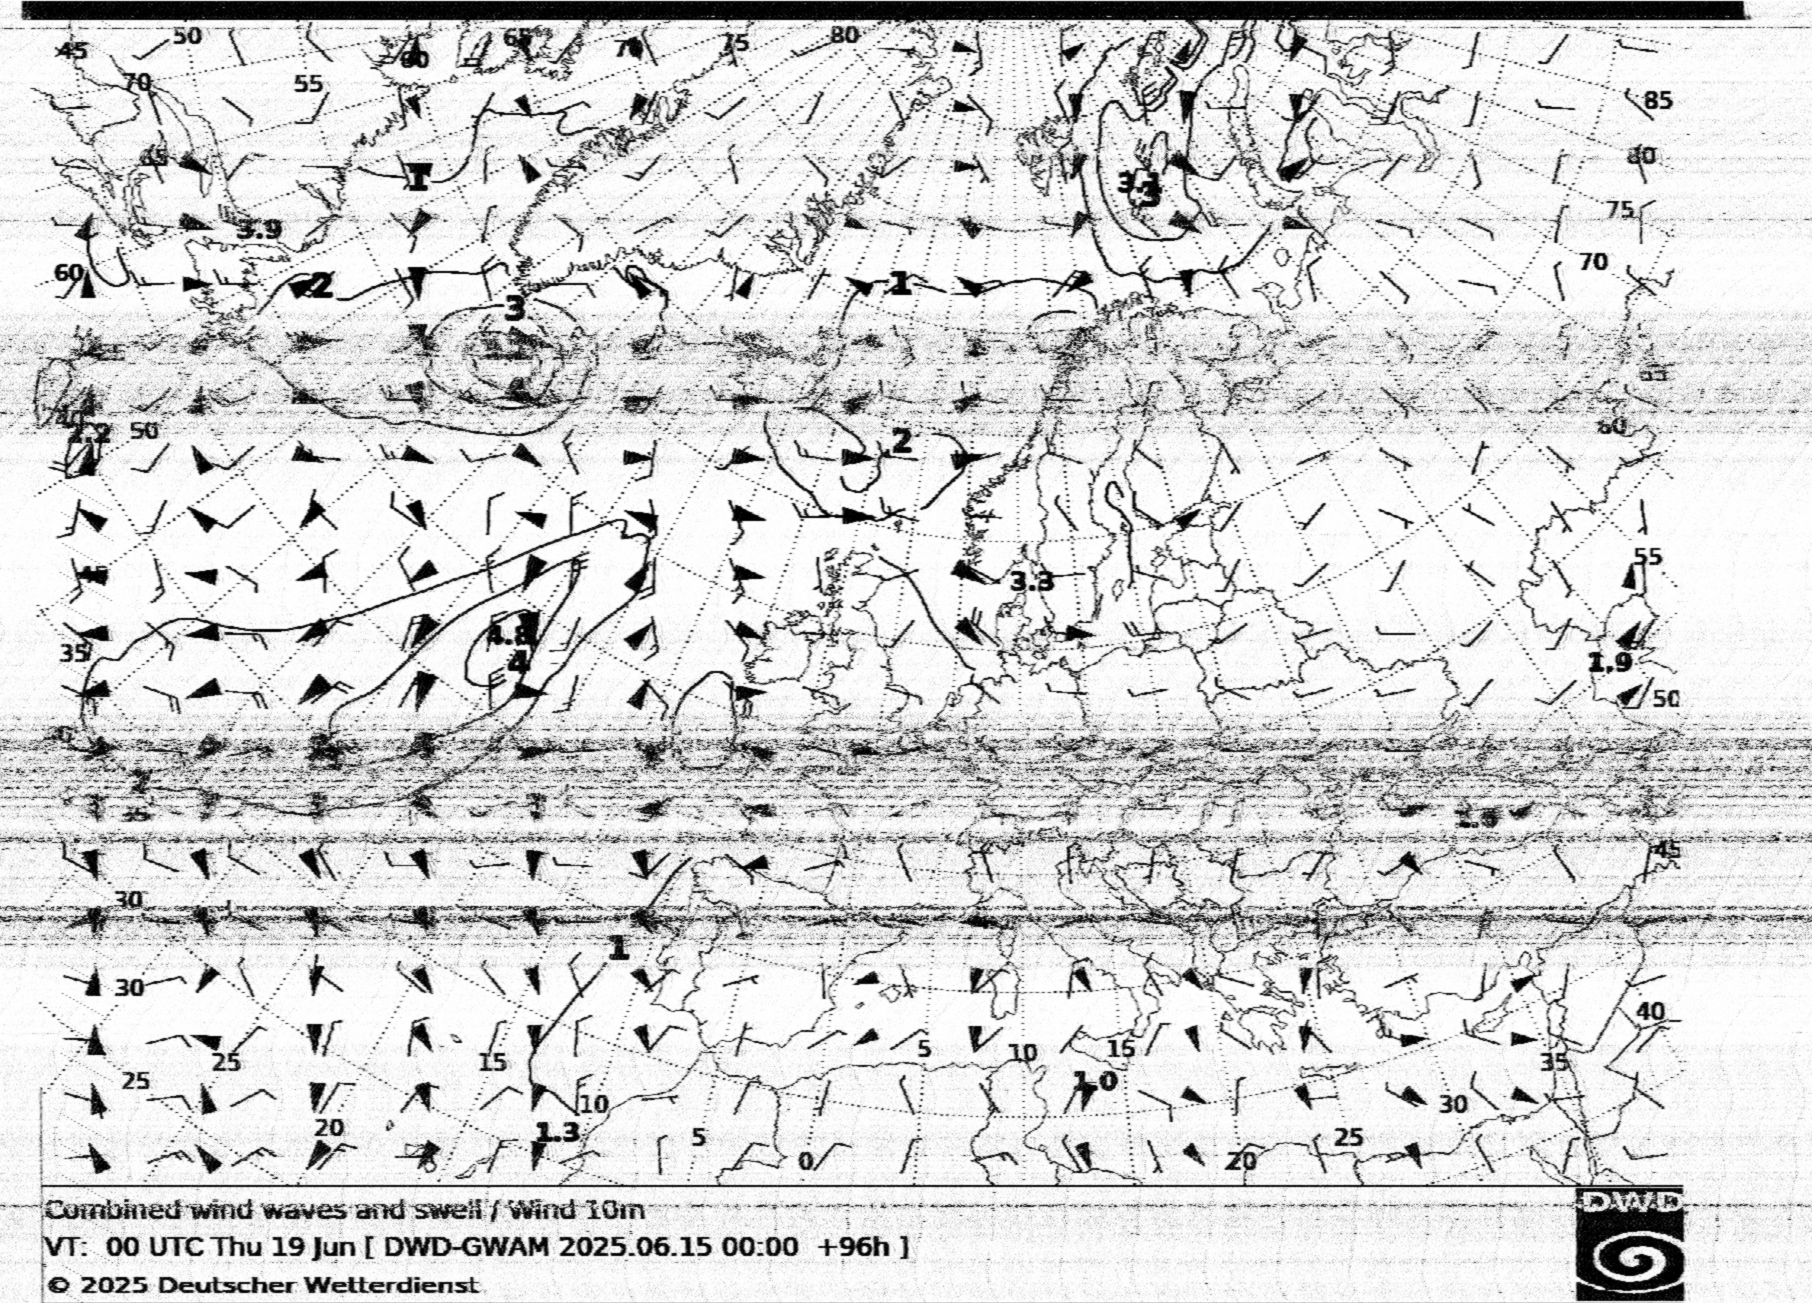 45 50 55 60 65 70 75 80
70 55
85
65 80
1
3.1
3
75
3.9
60 2 1 70
3
50 2 60
2.2
45 3.3 55
4.8
35 4 1.9
50
45
30
1
30 40
25 15 5 10 15 35
25 1.0
20 10 30
1.3 5 0 20 25
Combined wind waves and swell / Wind 10m
VT: 00 UTC Thu 19 Jun [ DWD-GWAM 2025.06.15 00:00 +96h ]
© 2025 Deutscher Wetterdienst
DWD